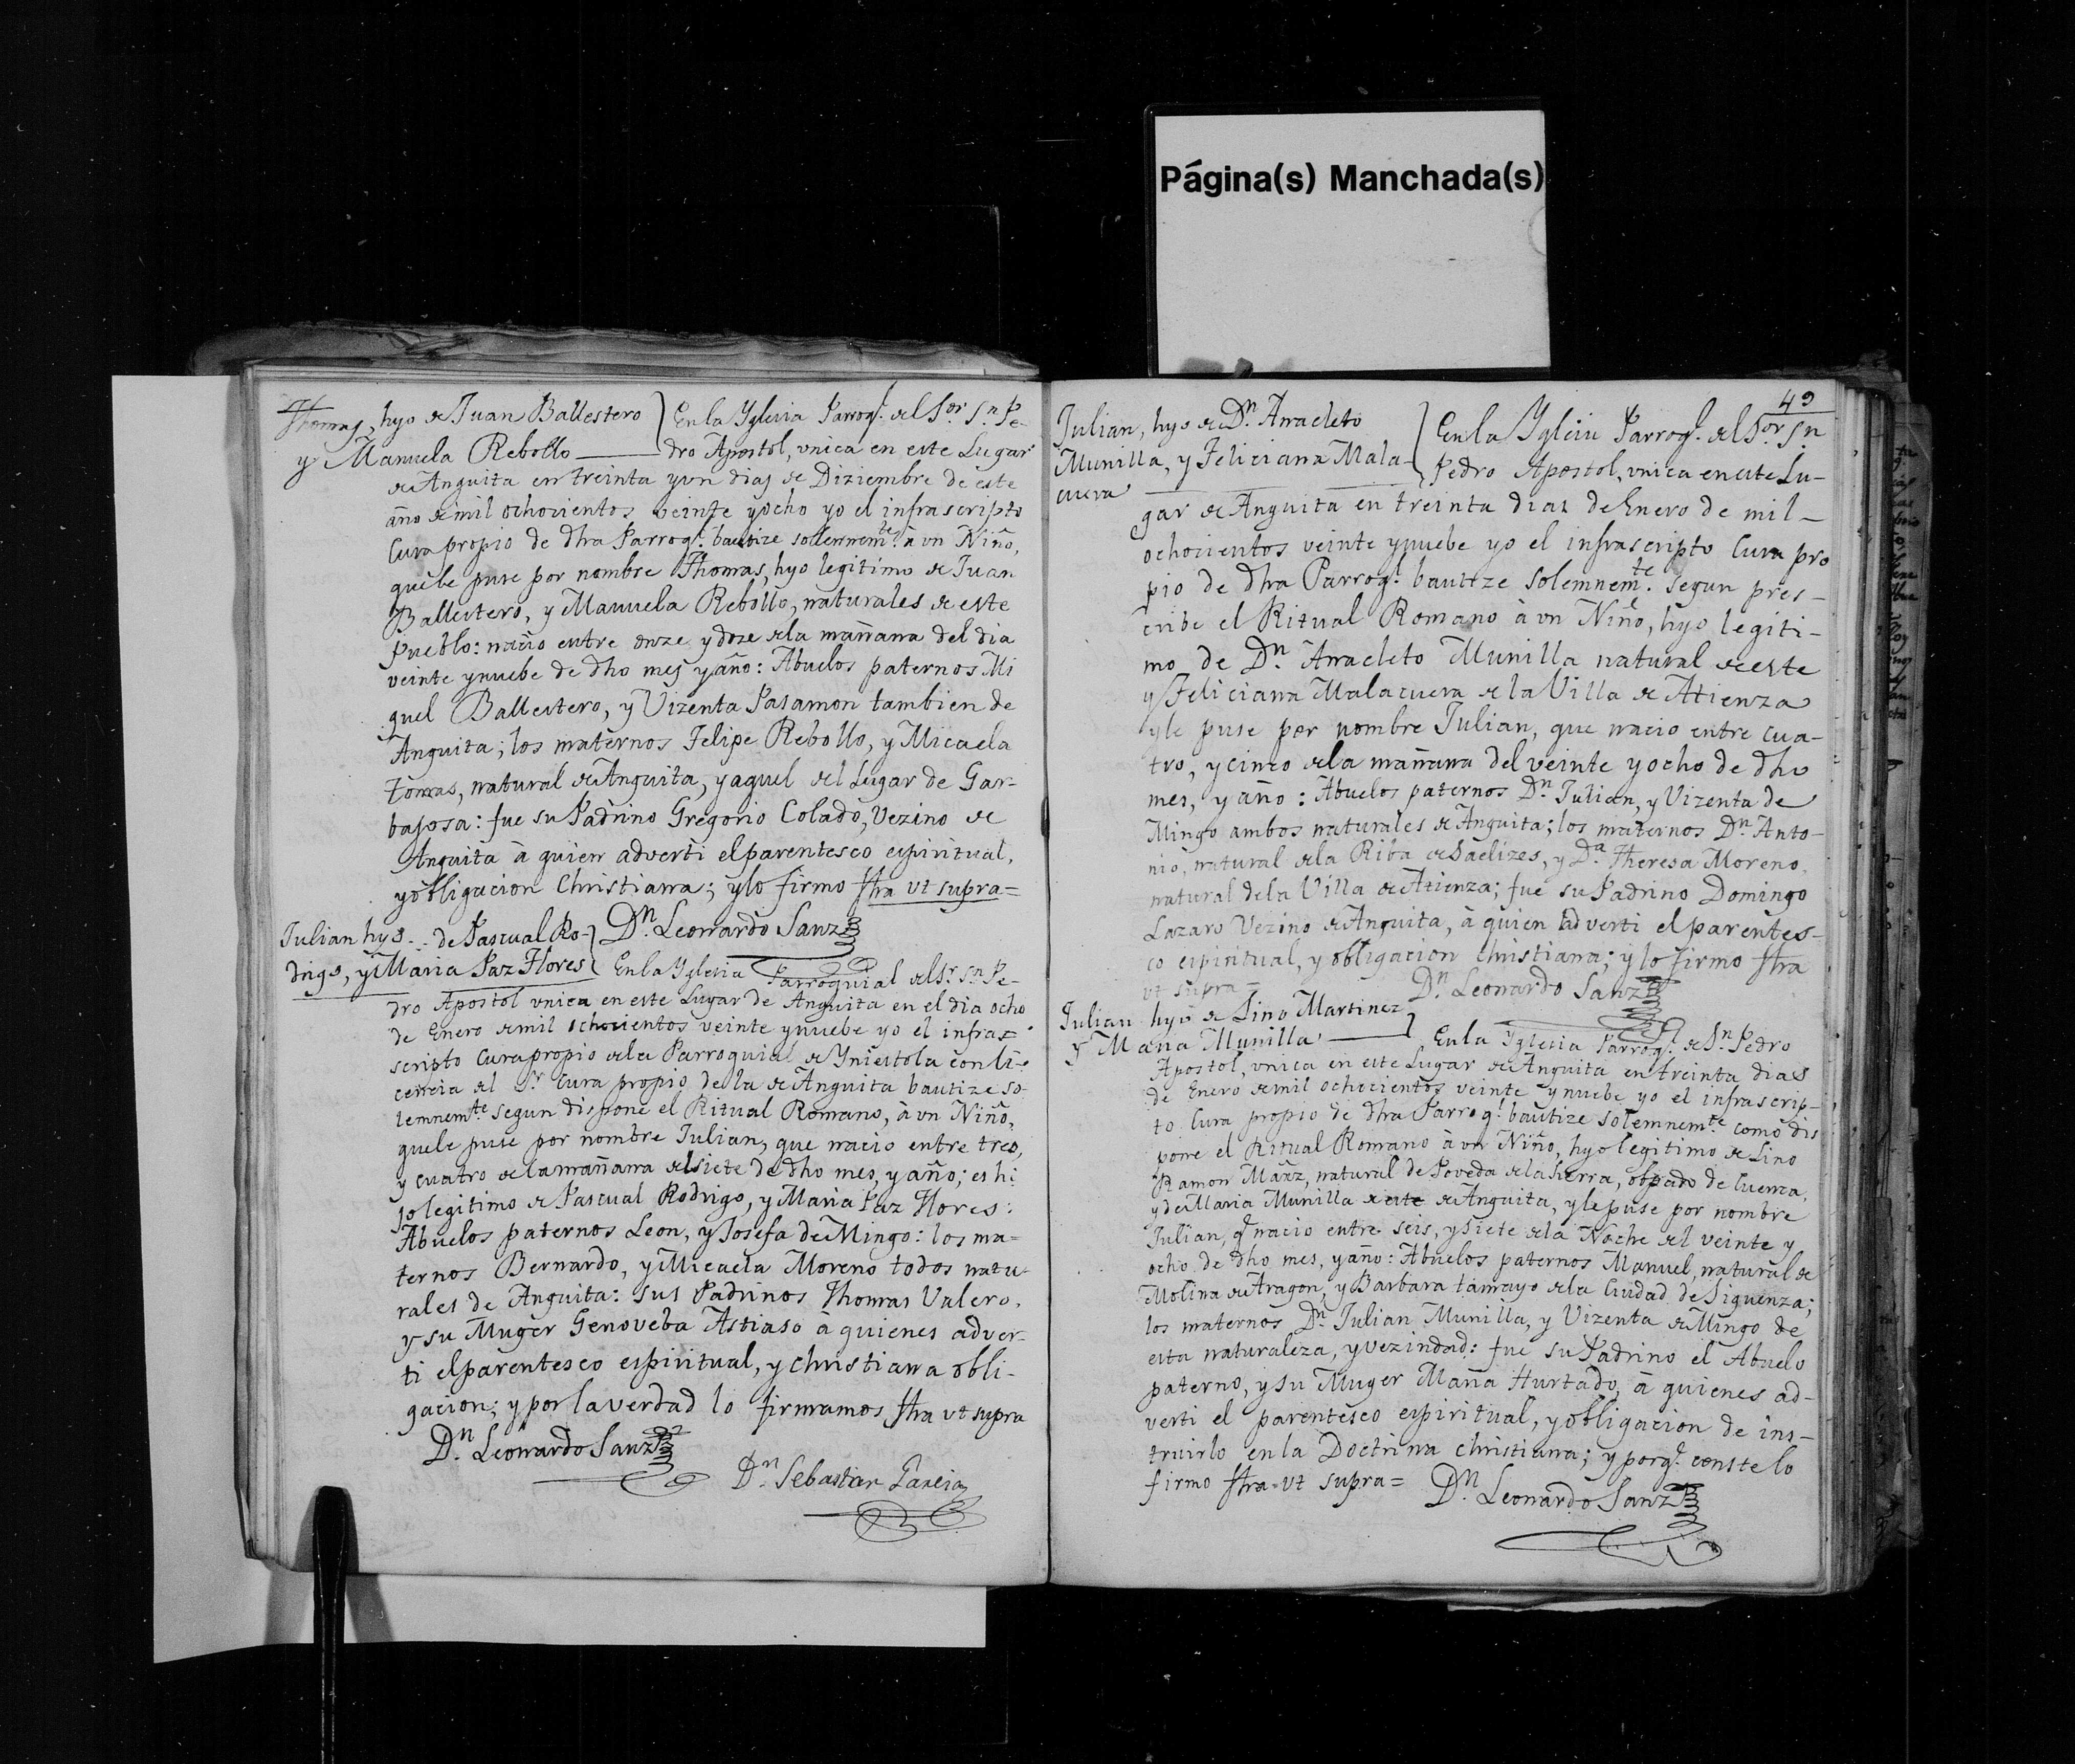 Página(s) Manchada(s)
Thomas, hyo de Juan Ballestero
y Manuela Rebollo
En la Yglesia Parroq.l del S.or S.n Pe-
dro Apostol, vnica en este Lugar
de Anguita en treinta y vn dias de Diziembre de este
año de mil ochocientos veinte y ocho yo el infrascripto
Cura propio de dha Parroq.l bautize solemnem.te à vn Niño,
que le puse por nombre Thomas, hyo legitimo de Juan
Ballestero, y Manuela Rebollo, naturales de este
Pueblo: nacio entre onze y doze de la mañana del dia
veinte y nuebe de dho mes y año: Abuelos paternos Mi
guel Ballestero, y Vizenta Pasamon tambien de
Anguita; los maternos Felipe Rebollo, y Micaela
Tomas, natural de Anguita, y aquel del Lugar de Gar-
bajosa: fue su Padrino Gregorio Colado, Vezino de
Anguita à quien adverti el parentesco espiritual,
y obligacion Christiana; y lo firmo fha vt supra=
D.n Leonardo Sanz
Julian hyo de Pascual Ro-
drigo, y Maria Paz Flores
En la Yglesia Parroquial del S.r S.n Pe-
dro Apostol vnica en este Lugar de Anguita en el dia ocho
de Enero de mil ochocientos veinte y nuebe yo el infras=
scripto Cura propio de la Parroquial de Yniestola con li-
cencia del S.r Cura propio de la de Anguita bautize so-
lemnem.te segun dispone el Ritual Romano, à vn Niño,
que le puse por nombre Julian, que nacio entre tres,
y cuatro de la mañana del siete de dho mes, y año; es hi
jo legitimo de Pascual Rodrigo, y Maria Paz Flores:
Abuelos paternos Leon, y Josefa de Mingo: los ma-
ternos Bernardo, y Micaela Moreno todos natu-
rales de Anguita: sus Padrinos Thomas Valero,
y su Muger Genoveba Astiaso à quienes adver-
ti el parentesco espiritual, y christiana obli-
gacion; y por la verdad lo firmamos fha vt supra
D.n Leonardo Sanz
D.n Sebastian Garcia
49
Julian, hyo de D.n Anacleto
Munilla, y Feliciana Mala-
cuera
En la Yglesia Parroq.l del S.or S.n
Pedro Apostol, vnica en este Lu-
gar de Anguita en treinta dias de Enero de mil
ochocientos veinte y nuebe yo el infrascripto Cura pro
pio de dha Parroq.l bautize solemnem.te segun pres-
cribe el Ritual Romano à vn Niño, hyo legiti-
mo de D.n Anacleto Munilla natural de este
y Feliciana Malacuera de la Villa de Atienza
y le puse por nombre Julian, que nacio entre cua-
tro, y cinco de la mañana del veinte y ocho de dho
mes, y año: Abuelos paternos D.n Julian, y Vizenta de
Mingo ambos naturales de Anguita; los maternos D.n Anto-
nio, natural de la Riba de Saelizes, y D.a Theresa Moreno,
natural de la Villa de Atienza; fue su Padrino Domingo
Lazaro Vezino de Anguita, à quien adverti el parentes-
co espiritual, y obligacion christiana; y lo firmo fha
vt supra=
D.n Leonardo Sanz
Julian hyo de Lino Martinez
y Maria Munilla
En la Yglesia Parroq.l de S.n Pedro
Apostol, vnica en este Lugar de Anguita en treinta dias
de Enero de mil ochocientos veinte y nuebe yo el infrascrip-
to Cura propio de dha Parroq.l bautize solemnem.te como dis
pone el Ritual Romano à vn Niño, hyo legitimo de Lino
Ramon Marz, natural de Poveda de la Sierra, obpado de Cuenca,
y de Maria Munilla de este de Anguita, y le puse por nombre
Julian, q.e nacio entre seis, y siete de la Noche del veinte y
ocho de dho mes, y año: Abuelos paternos Manuel, natural de
Molina de Aragon, y Barbara tamayo de la Ciudad de Siguenza;
los maternos D.n Julian Munilla, y Vizenta de Mingo de
esta naturaleza, y vezindad: fue su Padrino el Abuelo
paterno, y su Muger Maria Hurtado, à quienes ad-
verti el parentesco espiritual, y obligacion de ins-
truirlo en la Doctrina christiana; y porq.e conste lo
firmo fha vt supra=
D.n Leonardo Sanz